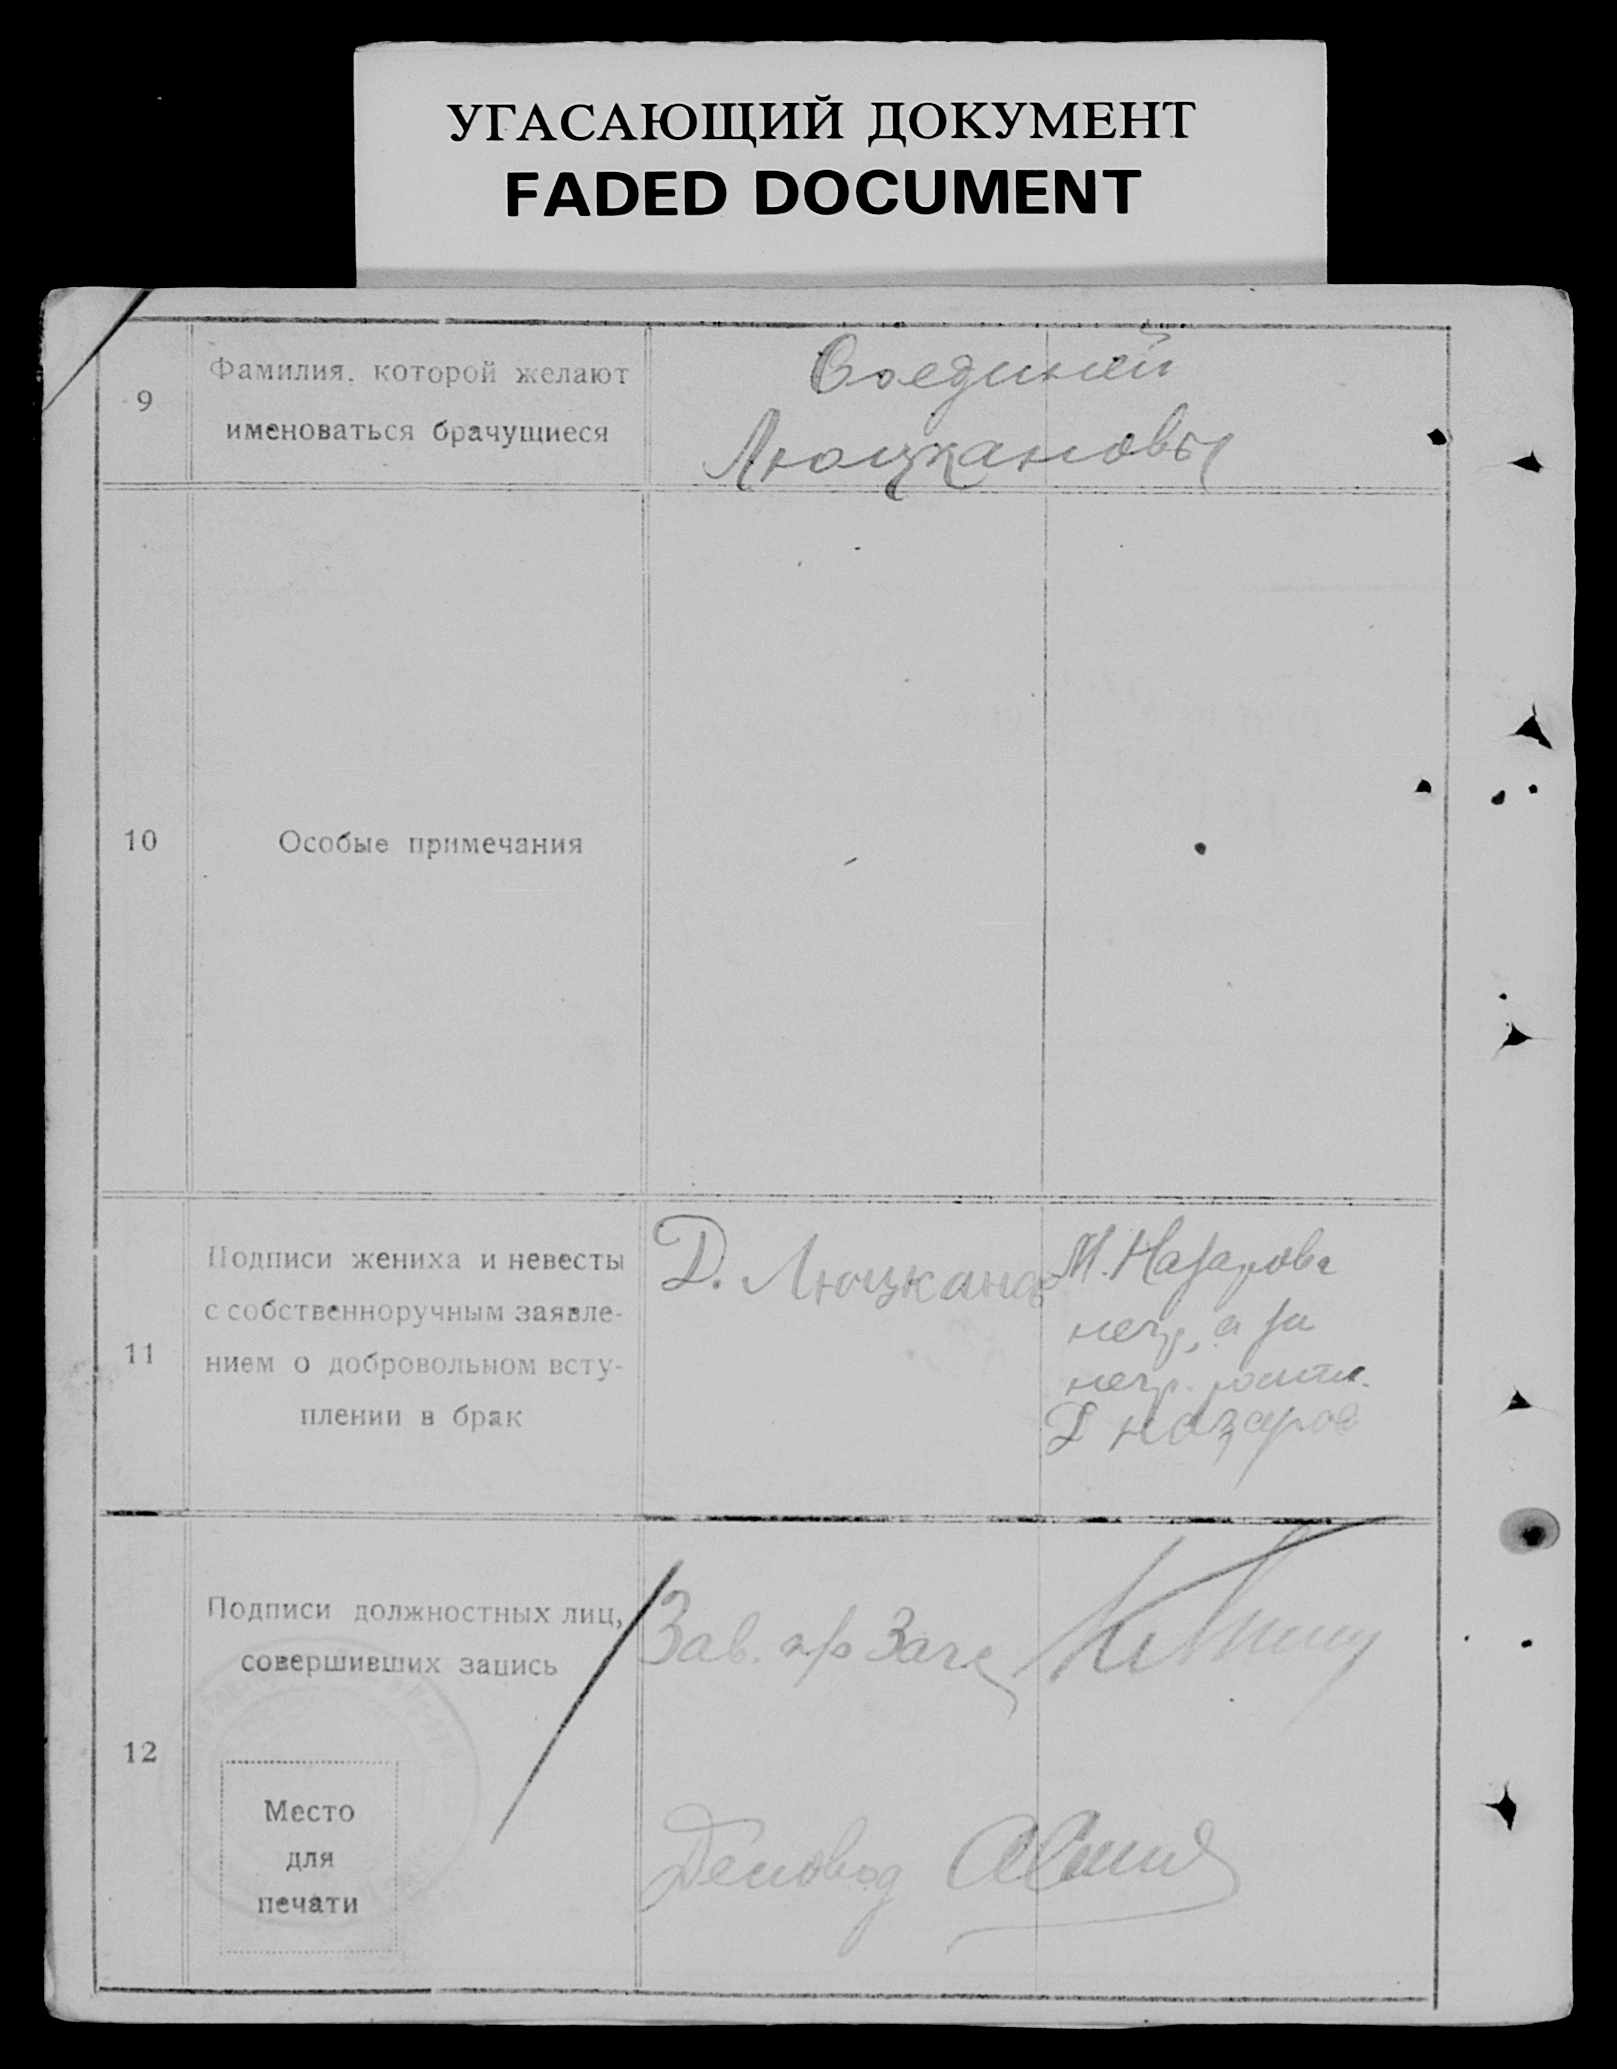 УГАСАЮЩИЙ ДОКУМЕНТ
FADED DOCUMENT
9
Фамилия, которой желают
именоваться брачущиеся
Люцкановы
10
Особые примечания
11
Подписи жениха и невесты
с собственноручным заявле-
нием о добровольном всту-
плении в брак
Д. Люцканов
М. Назарова
негр, а за
негр. распис.
Д Назаров
12
Подписи должностных лиц,
совершивших запись
Зав.
Место
для
печати
Деловод